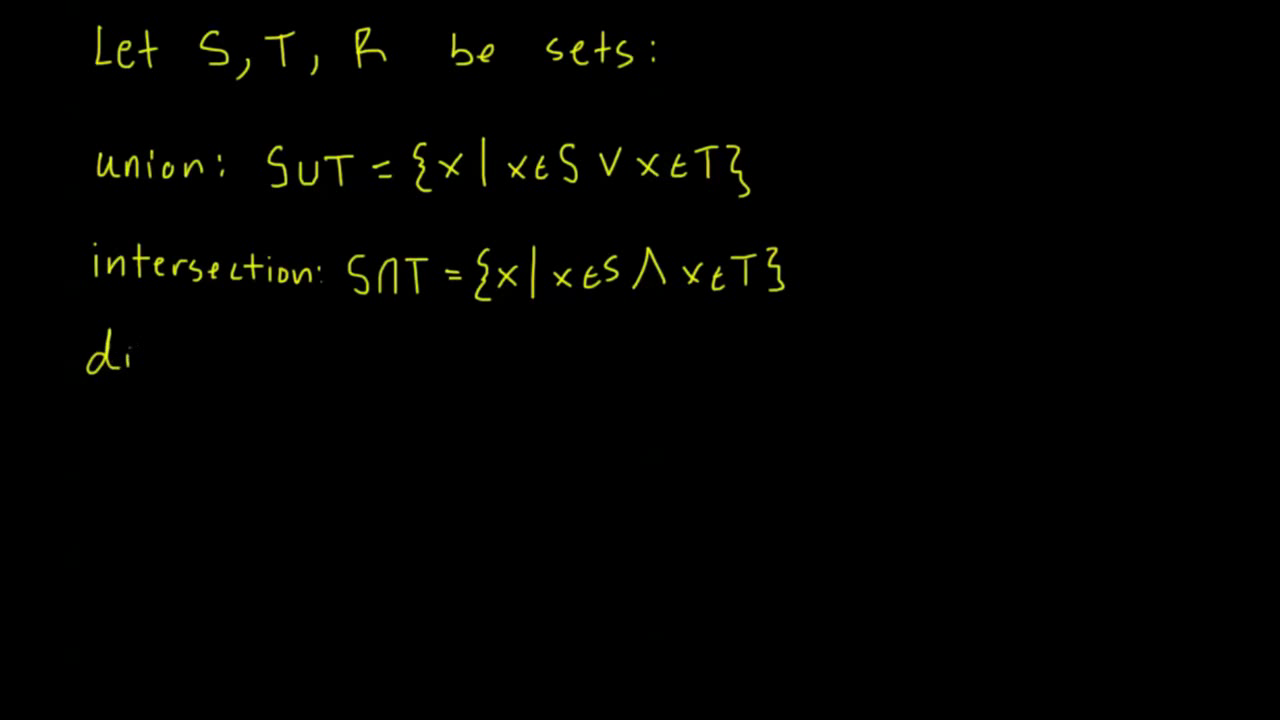 Let S, T, R be sets:
union: S∪T = {x | x∈S ∨ x∈T}
intersection: S∩T = {x | x∈S ∧ x∈T}
di